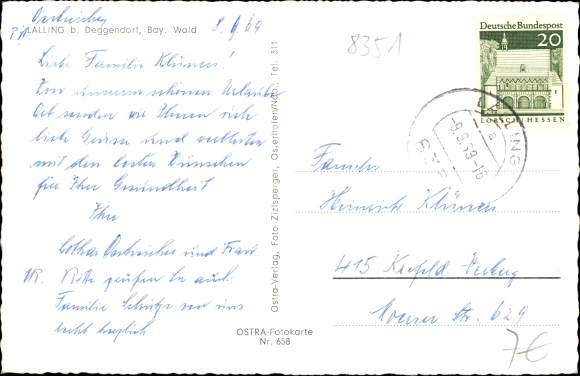 LALLING b. Deggendorf, Bay. Wald
8. 9. 69
Liebe Familie Klünner!
Von unserem schönen Urlaubs
Ort senden wir Ihnen recht
liebe Grüsse und verbleiben
mit den besten Wünschen
für Ihre Gesundheit
Ihre
Lothar Oestreicher und Frau
NB. Bitte grüßen Sie auch
Familie Schütze von uns
recht herzlich
Ostra-Verlag, Foto Zizlsperger, Osterhofen/Ndb., Tel. 311
OSTRA-Fotokarte
Nr. 658
8351
Deutsche Bundespost
20
LORSCH HESSEN
LALLING
a
-9.9.69-16
8351
Familie
Klünner
415 Krefeld-
Moerser Str. 629
7€